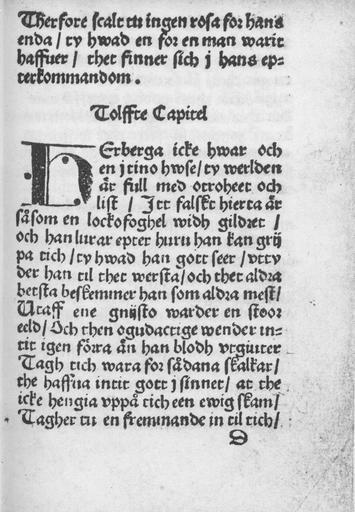 Therfore scalt tu ingen rosa for hans
enda / ty hwad en for en man warit
haffuer / thet finner sich j hans ep-
terkommandom .
Tolffte Capitel
HErberga icke hwar och
en j tino hwse / ty werlden
är full med otroheet och
list / Itt falskt hierta är
såsom en lockofoghel widh gildret /
och han lurar epter huru han kan grij
pa tich / ty hwad han gott seer / vtty
der han til thet wersta / och thet aldra
betsta beskemmer han som aldra mest /
Utaff ene gnijsto warder en stoor
eeld / Och then ogudactige wender in-
tit igen förra än han blodh vtgiuter
Tagh tich wara for sådana skalkar /
the haffua intit gott j sinnet / at the
icke hengia vppå tich een ewig skam /
Tagher tu en fremmande in til tich /
D